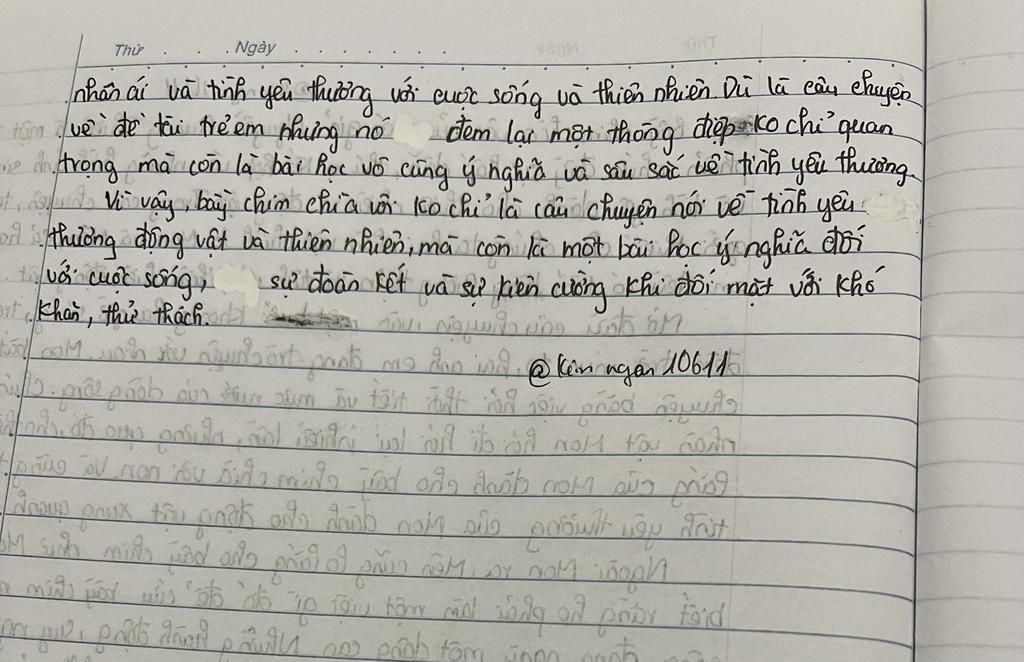 Thứ . . . Ngày . . . . . . . .
nhân ái và tình yêu thương với cuộc sống và thiên nhiên. Dù là câu chuyện
về đề tài trẻ em nhưng nó đem lại một thông điệp ko chỉ quan
trọng mà còn là bài học vô cùng ý nghĩa và sâu sắc về tình yêu thương.
Vì vậy, bầy chim chìa vôi ko chỉ là câu chuyện nói về tình yêu
thương động vật và thiên nhiên, mà còn là một bài học ý nghĩa đối
với cuộc sống, sự đoàn kết và sự kiên cường khi đối mặt với khó
khăn, thử thách.
@kim ngân 10611